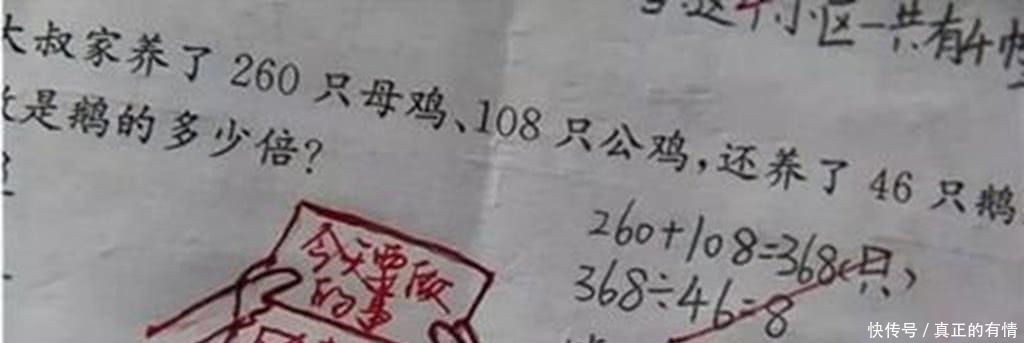 这个小区一共有4幢
大叔家养了 260 只母鸡、108 只公鸡,还养了 46 只鹅
是鹅的多少倍?
260+108=368(只)
368÷46=8
今天要做
的事
快传号 / 真正的有情